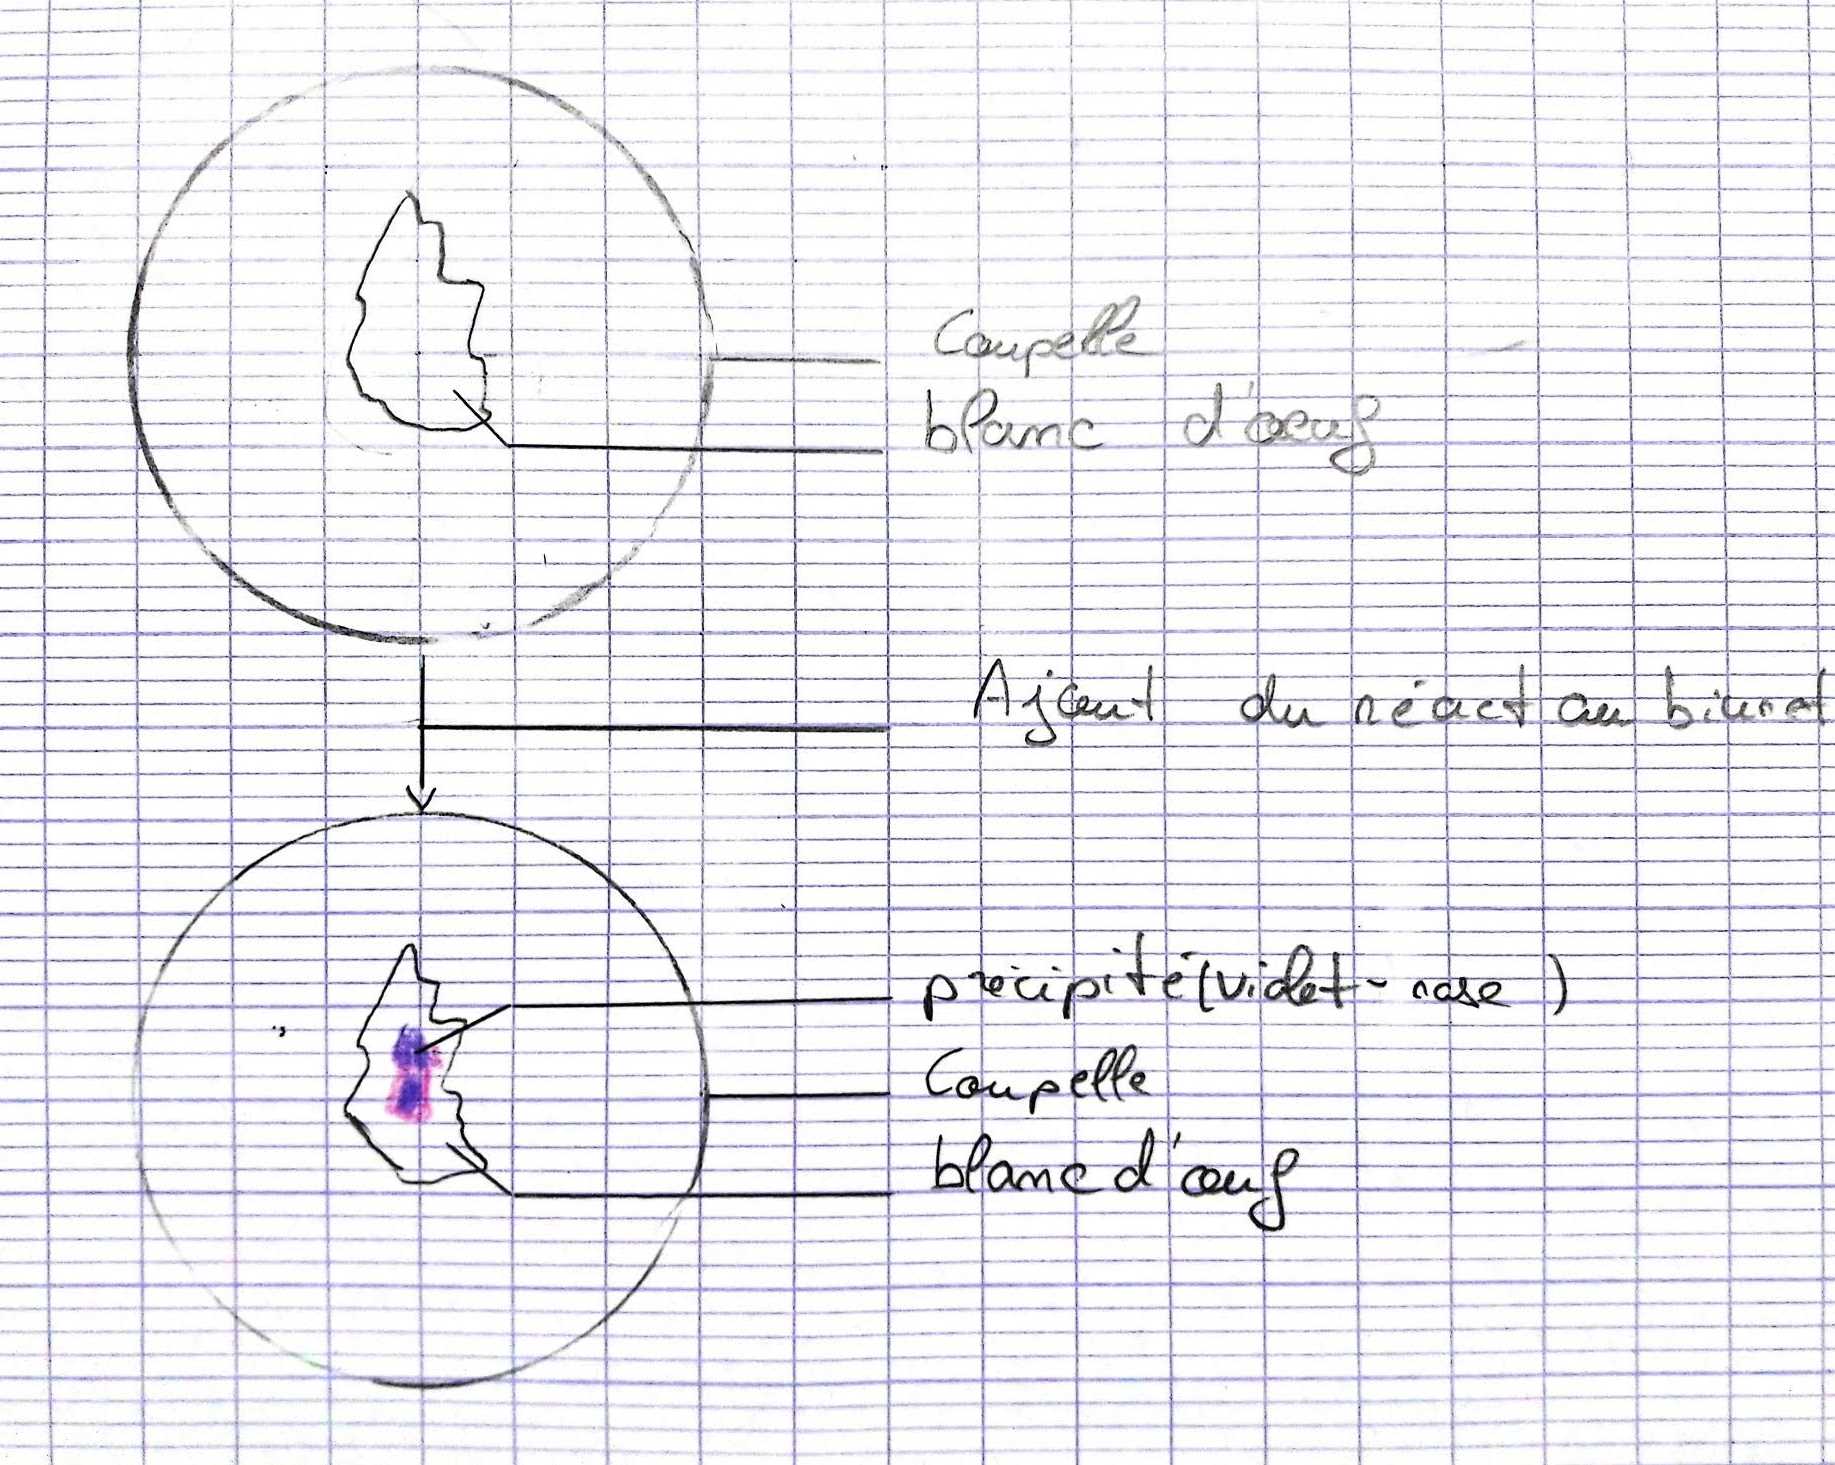 Coupelle
blanc d'oeuf
Ajout du réact au biuret
précipité (violet-rose)
Coupelle
blanc d'oeuf